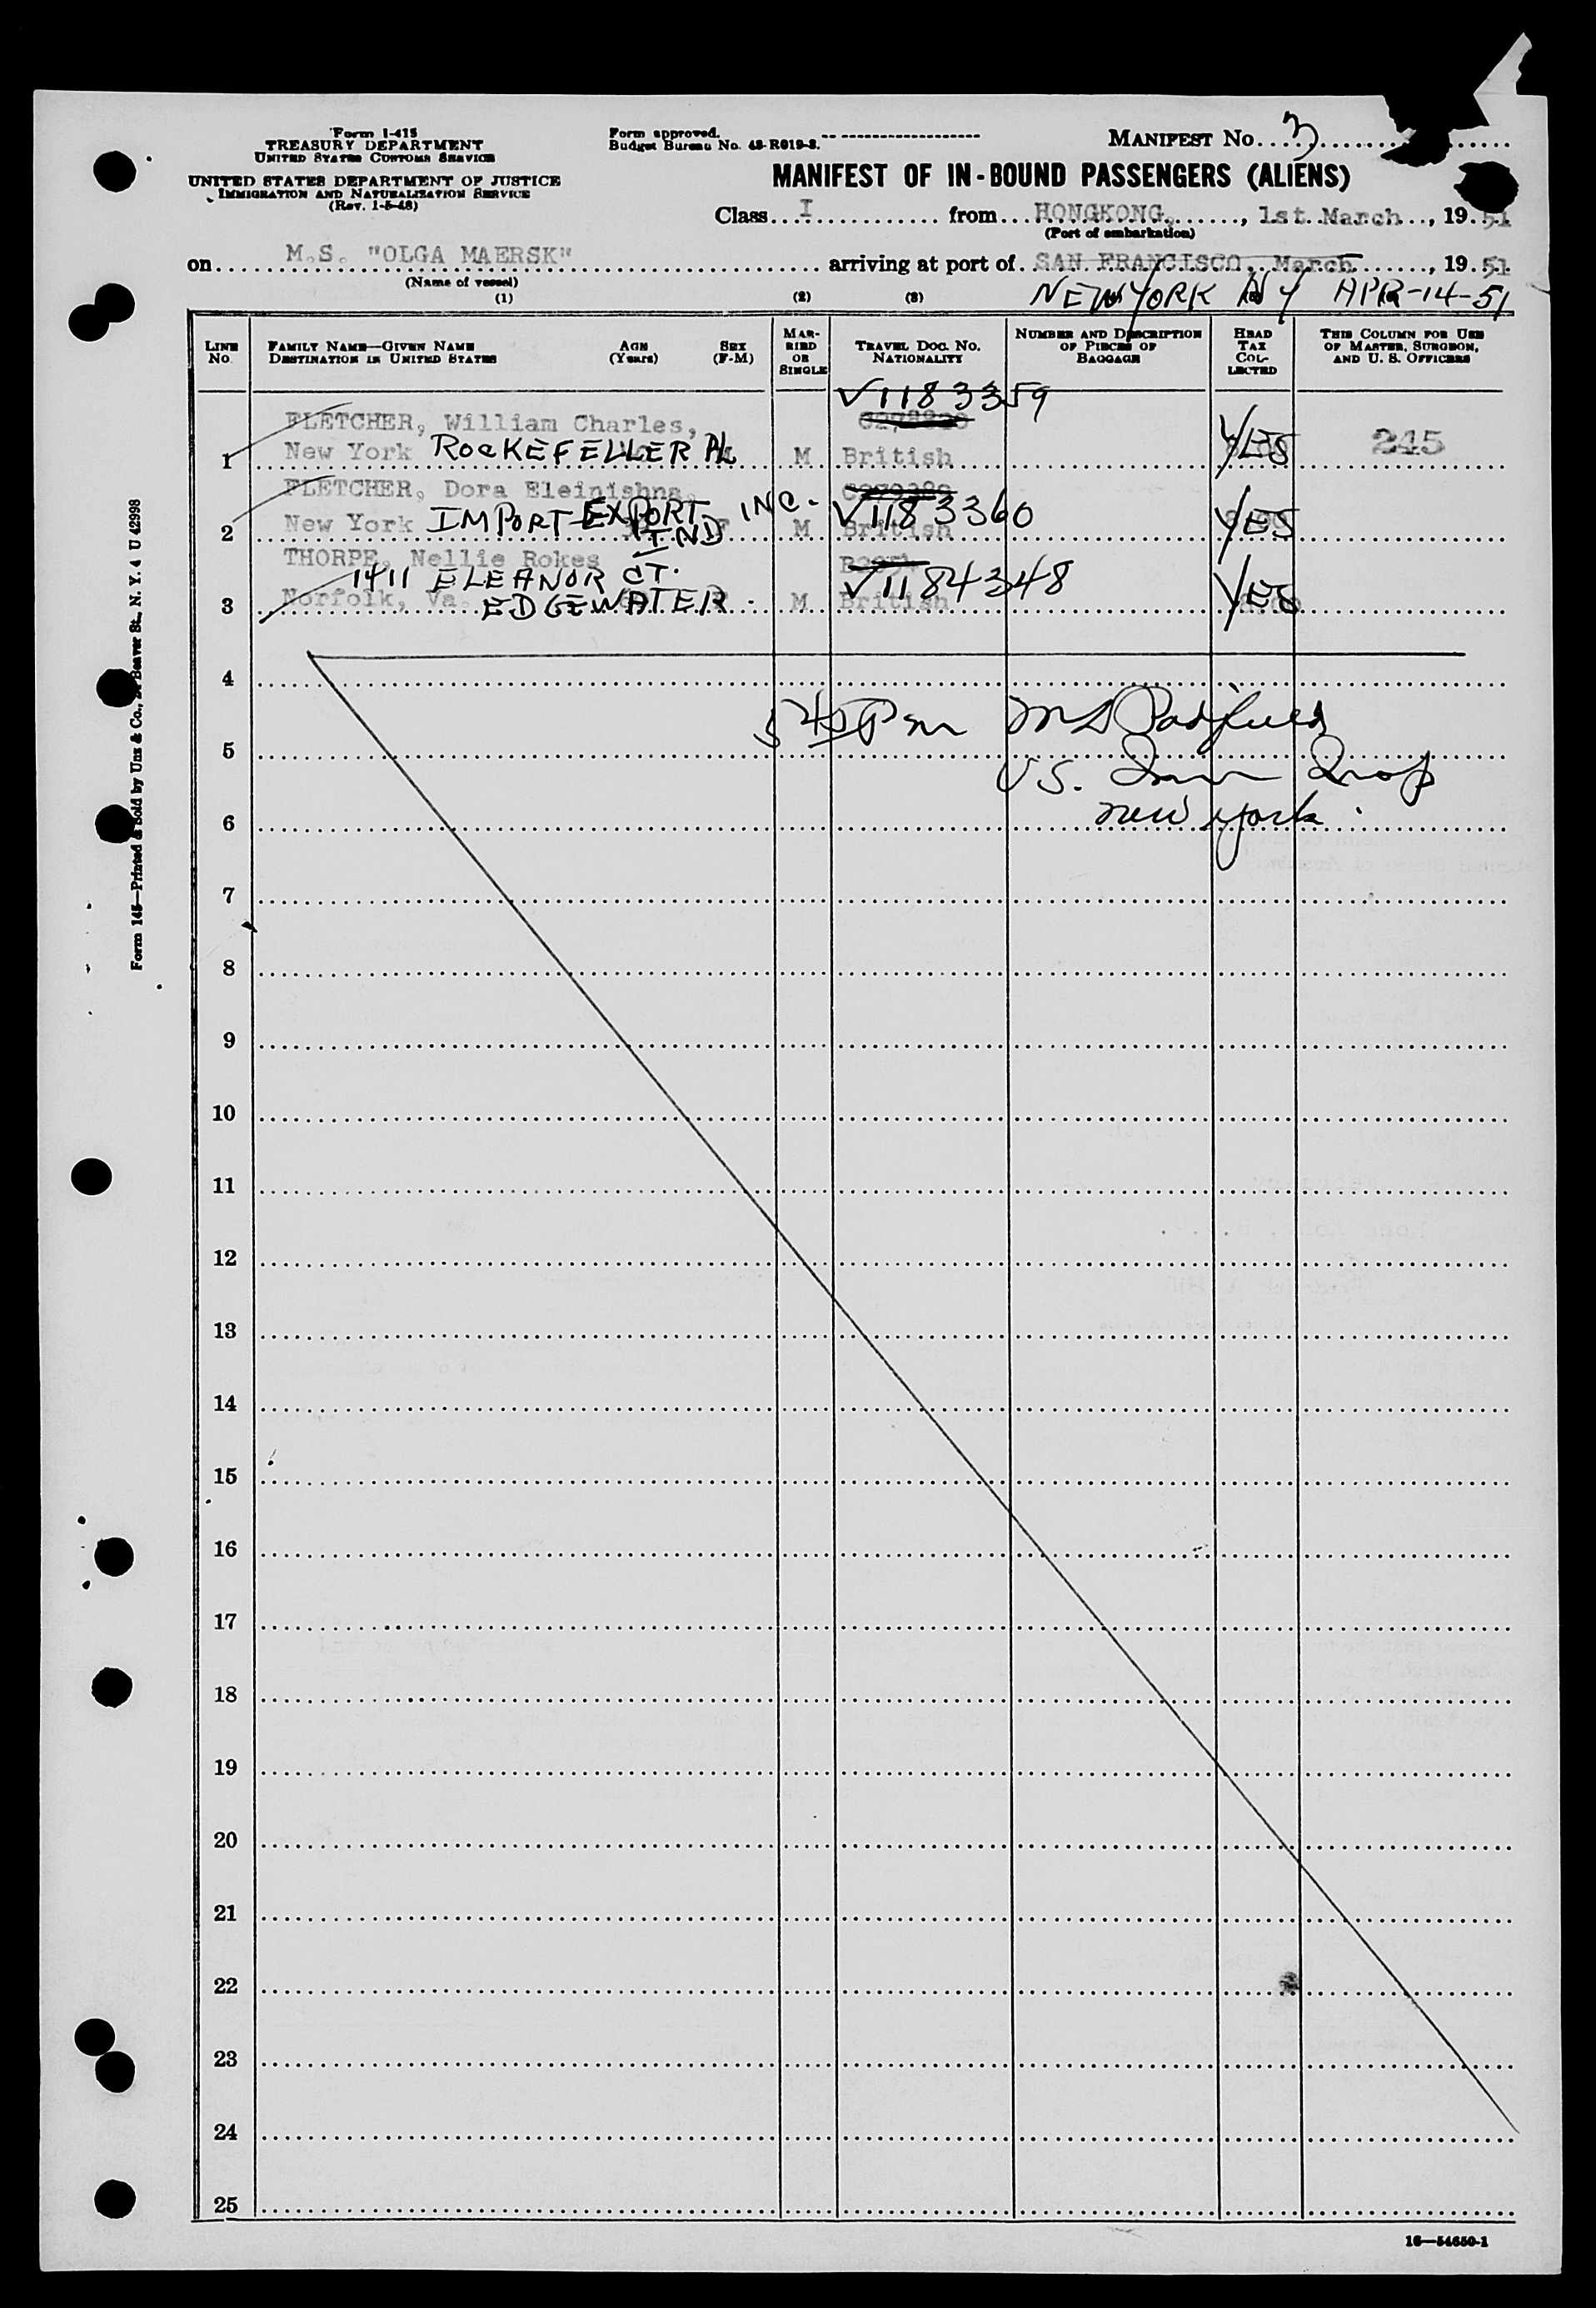 Form I-415
TREASURY DEPARTMENT
UNITED STATES CUSTOMS SERVICE
UNITED STATES DEPARTMENT OF JUSTICE
IMMIGRATION AND NATURALIZATION SERVICE
(Rev. 1-5-48)
Form approved.
Budget Bureau No. 43-R019-3.
MANIFEST No. 3
MANIFEST OF IN-BOUND PASSENGERS (ALIENS)
Class I from HONGKONG, 1st March, 1951
(Port of embarkation)
on M.S. "OLGA MAERSK" arriving at port of SAN FRANCISCO, March, 1951
(Name of vessel)
NEW YORK NY APR-14-51
(1) (2) (3)
LINE No.
FAMILY NAME—GIVEN NAME
DESTINATION IN UNITED STATES
AGE (Years)
SEX (F-M)
MARRIED OR SINGLE
TRAVEL DOC. NO. NATIONALITY
NUMBER AND DESCRIPTION OF PIECES OF BAGGAGE
HEAD TAX COLLECTED
THIS COLUMN FOR USE OF MASTER, SURGEON, AND U. S. OFFICERS
V1183359
FLETCHER, William Charles,
1 New York ROCKEFELLER PL M British YES 245
FLETCHER, Dora Eleinishna,
2 New York IMPORT-EXPORT INC. F M V1183360 British YES
IND
THORPE, Nellie Rokes
1411 ELEANOR CT. V1184348
3 Norfolk, Va. EDGEWATER M British YES
4
545 Pm
5
U.S. Imm Insp
6 New York
7
8
9
10
11
12
13
14
15
16
17
18
19
20
21
22
23
24
25
16—54650-1
Form 145—Printed & Sold by Unz & Co., Beaver St., N. Y. 4 U 42998